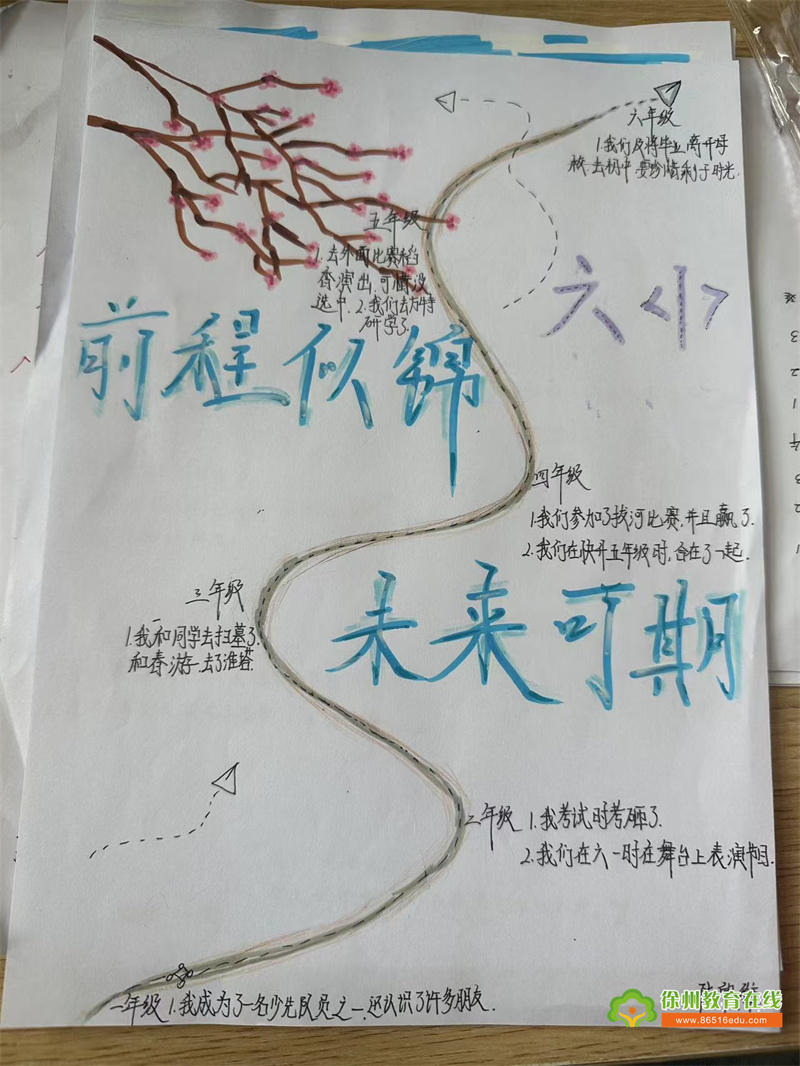 六年级
1.我们及将毕业,离开母
校,去初中,要珍惜剩于时光.
五年级
1.去外面比赛稻
香演出,可惜没
选中.2.我们去
研学了
六小
前程似锦
四年级
1.我们参加了拔河比赛,并且赢了.
2.我们在快升五年级时,合在了一起.
三年级
1.我和同学去扫墓了
和春游,去了淮塔.
未来可期
二年级 1.我考试时考砸了.
2.我们在六一时在舞台上表演节目.
一年级 1.我成为了一名少先队员之一,还认识了许多朋友.
徐州教育在线
www.86516edu.com